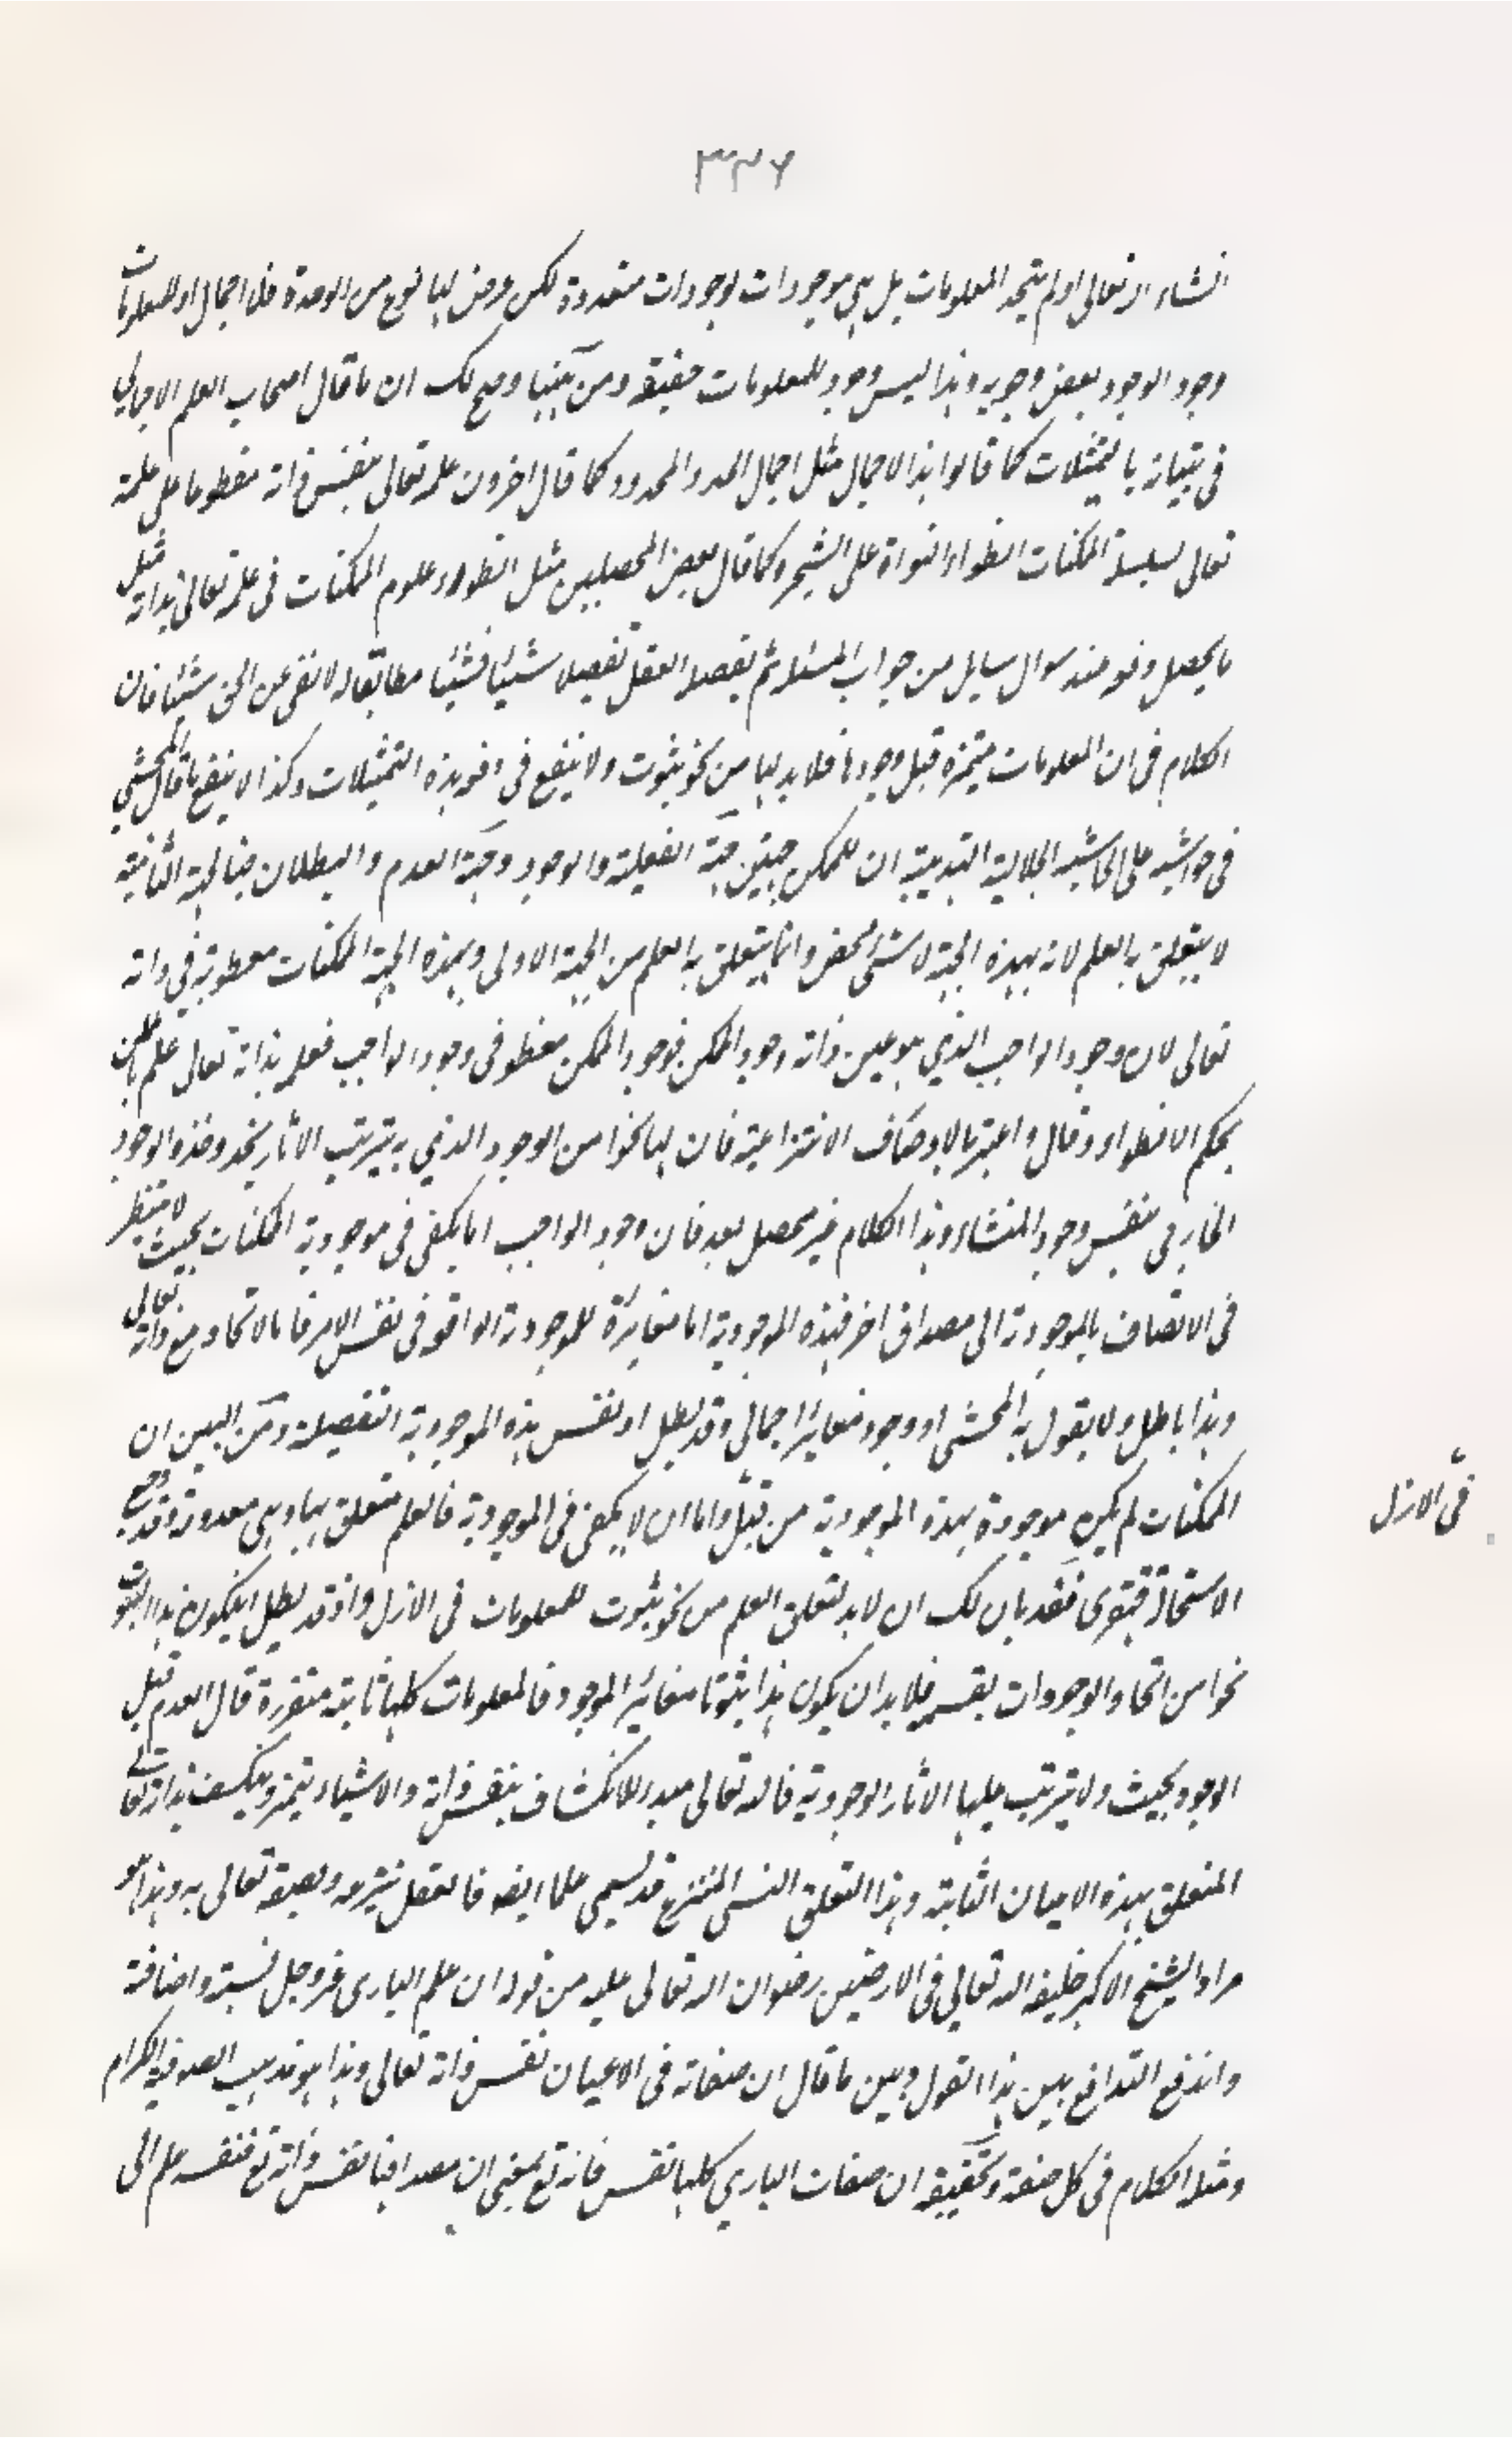 ٣٢٦
انشاء الله تعالى او لم يتحد المعلومات بل هي موجودات لوجودات متعددة لكن عرض لها نوع من الوحدة فلا اجمال او للمعلومات
وجود الوجود بعض وجوبه وهذا ليس وجود للمعلومات حقيقة ومن ههنا وضح لك ان ما قال اصحاب العلم الاجمالي
في بيانه بالتمثيلات كما قالوا هذا الاجمال مثل اجمال الحد والمحدود وكما قال اخرون علمه تعالى بنفس ذاته منطويا على علمه
تعالى لسلسلة الممكنات انطواء النواة على الشجر وكما قال بعض المحصلين مثل انطواء علوم الممكنات في علمه تعالى بذاته مثل
ما يحصل دفعة عند سوال سايل من جواب المسئلة ثم يفصله العقل تفصيلا شيئا فشيئا مطابقا له لا نغني عن الحق شيئا فان
الكلام في ان المعلومات متميزة قبل وجودها فلا بد لها من نحو ثبوت ولا ينفع في دفعه هذه التمثيلات وكذا لا ينفع ما قال المحشي
في حواشيه على الحاشية الجلالية القديمة ان للممكن جهتين جهة الفعلية والوجود وجهة العدم والبطلان فبالجهة الثانية
لا يتعلق به العلم لانه بهذه الجهة لا شئ محض وانما يتعلق به العلم من الجهة الاولى وبهذه الجهة الممكنات منطوية في ذاته
تعالى لان وجود الواجب الذي هو عين ذاته وجود الممكن فوجود الممكن منطو في وجود الواجب فعلمه بذاته تعالى علم بالممكن
بحكم الانطواء وقال واعتبر بالاوصاف الانتزاعية فان لها نحوا من الوجود الذي به يترتب الاثار بحذو حذو الوجود
الخارجي بنفس وجود المنشاء وهذا الكلام غير محصل بعد فان وجود الواجب اما يكفي في موجودية الممكنات بحيث لا ينتظر
في الاتصاف بالموجودية الى مصداق اخر فهذه الموجودية اما مغايرة للموجودية الواقعة في نفس الامر فاما لاتحاد مع ذاته تعالى
وهذا باطل ولا يقول به المحشي او وجود مغاير اجمالي وقد بطل او نفس هذه الموجودية التفصيلية ومن البين ان
الممكنات لم يكن موجودة بهذه الموجودية من قبل واما ان لا يكفي في الموجودية فالعلم متعلق بها وهي معدومة وقد وضح
في الازل
الاستحالة فبقي فقد بان لك ان لا بد لتعلق العلم من نحو ثبوت للمعلومات في الازل واذ قد بطل ان يكون هذا الثبوت
نحوا من انحاء الوجودات بقسميه فلا بد ان يكون هذا ثبوتا مغايرا للوجود فالمعلومات كلها ثابتة متقررة قال العدم قبل
الوجود بحيث ولا يترتب عليها الاثار الوجودية فالله تعالى مبدء للانكشاف بنفس ذاته والاشياء يتميز وينكشف بذاته تعالى
المتعلق بهذه الاعيان الثابتة وهذا التعلق النسبي المنتزع قد يسمى علما ايضا فالعقل ينتزعه ويصفه تعالى به وهذا هو
مراد الشيخ الاكبر خليفة الله تعالى في الارضين رضوان الله تعالى عليه من قوله ان علم الباري عز وجل نسبة واضافة
واندفع التدافع بين هذا القول وبين ما قال ان صفاته في الاعيان نفس ذاته تعالى وهذا هو مذهب الصوفية الكرام
ومثله الكلام في كل صفة وتحقيقه ان صفات الباري كلها نفس ذاته تع بمعنى ان مصداقها نفس ذاته تع فنفسه علم الى